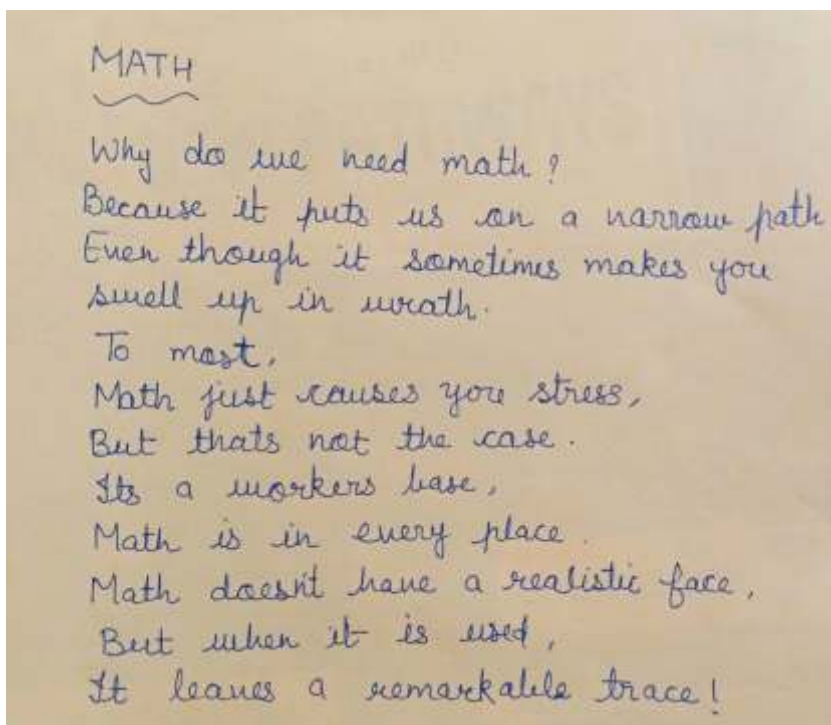 MATH
Why do we need math?
Because it puts us on a narrow path
Even though it sometimes makes you
swell up in wrath.
To most,
Math just causes you stress,
But thats not the case.
Its a workers base,
Math is in every place.
Math doesn't have a realistic face,
But when it is used,
It leaves a remarkable trace!